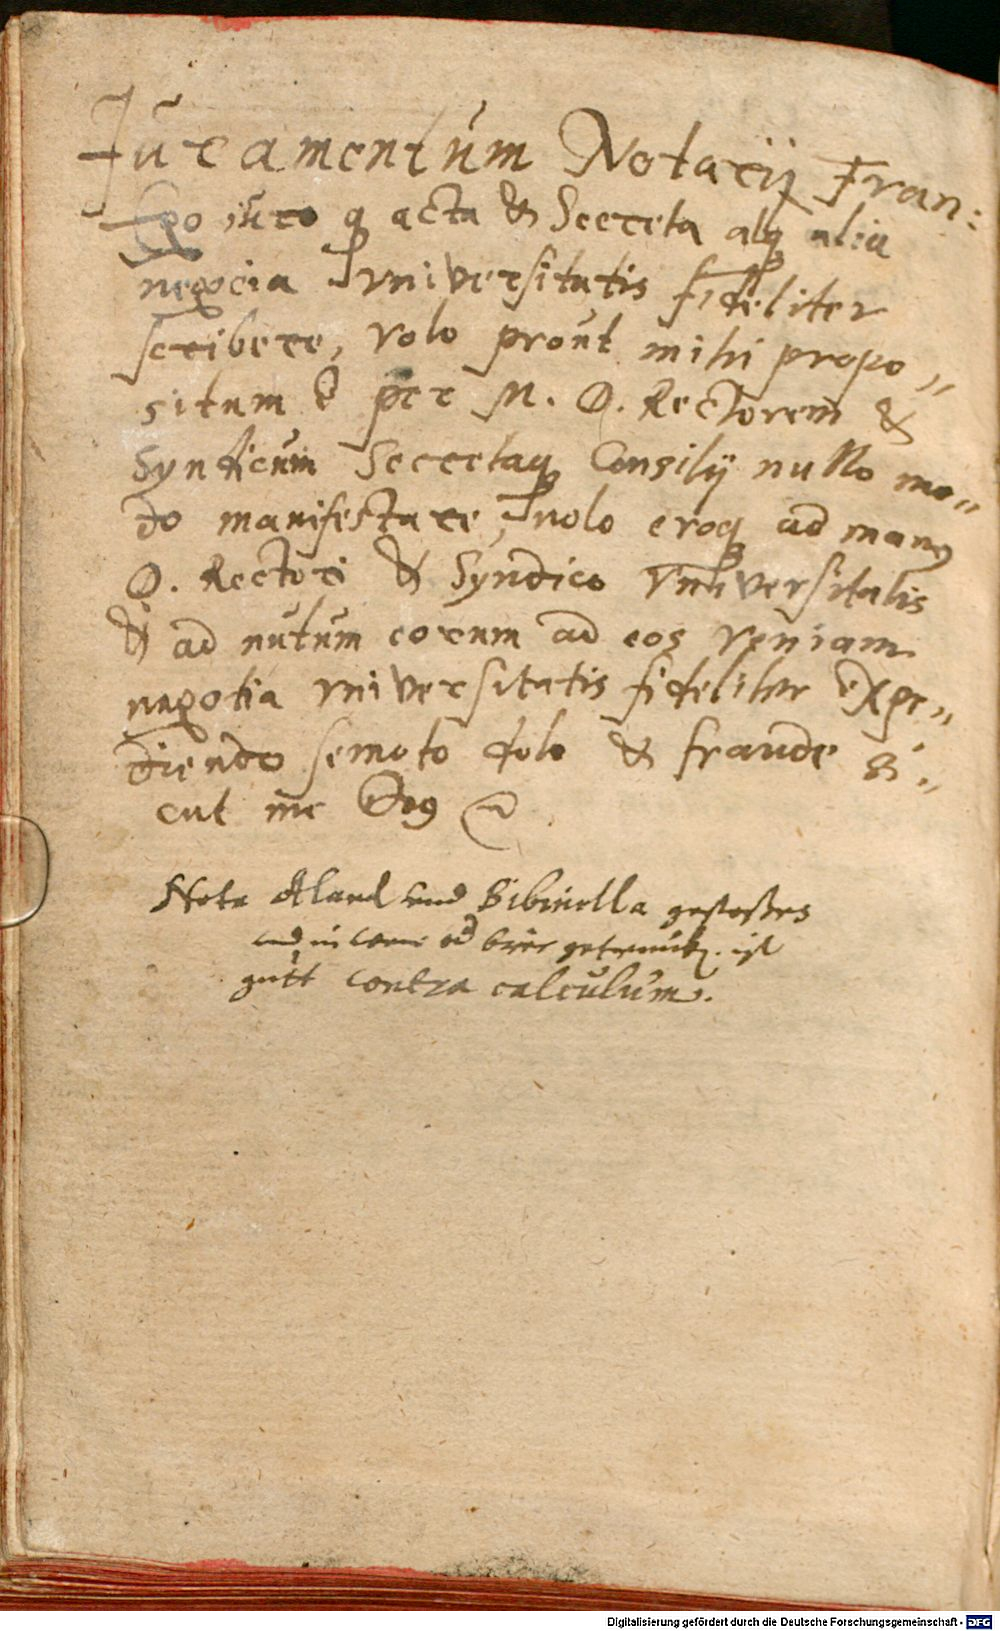 Juramentum Notarij Fran:
Ego iuro q acta & Secreta alq alia
negocia Vniversitatis fideliter
scribere, volo prout mihi propo„
situm è per M. D. Rectorem &
Syndicum Secretaq Consilij nullo mo„
do manifestare, volo eroq ad man9
D. Rectori & Syndico Vniversitatis
& ad nutum eorum ad eos veniam
negotia vniversitatis fideliter expe„
diendo semoto dolo & fraude Si„
cut me Deq
Nota Aland vnd Bibinella gestoßes
vnd in wein od bier getrunck. ist
gutt contra calculum.
Digitalisierung gefördert durch die Deutsche Forschungsgemeinschaft - DFG